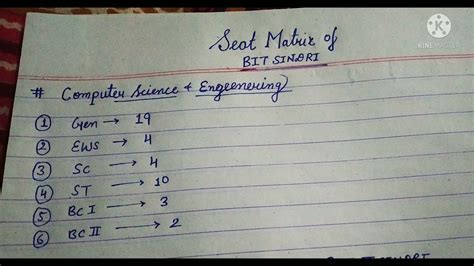 Seat Matrix of
BIT SINDRI
KINEMASTER
# Computer Science & Engeenering
1 Gen → 19
2 EWS → 4
3 SC → 4
4 ST → 10
5 BC I → 3
6 BC II → 2